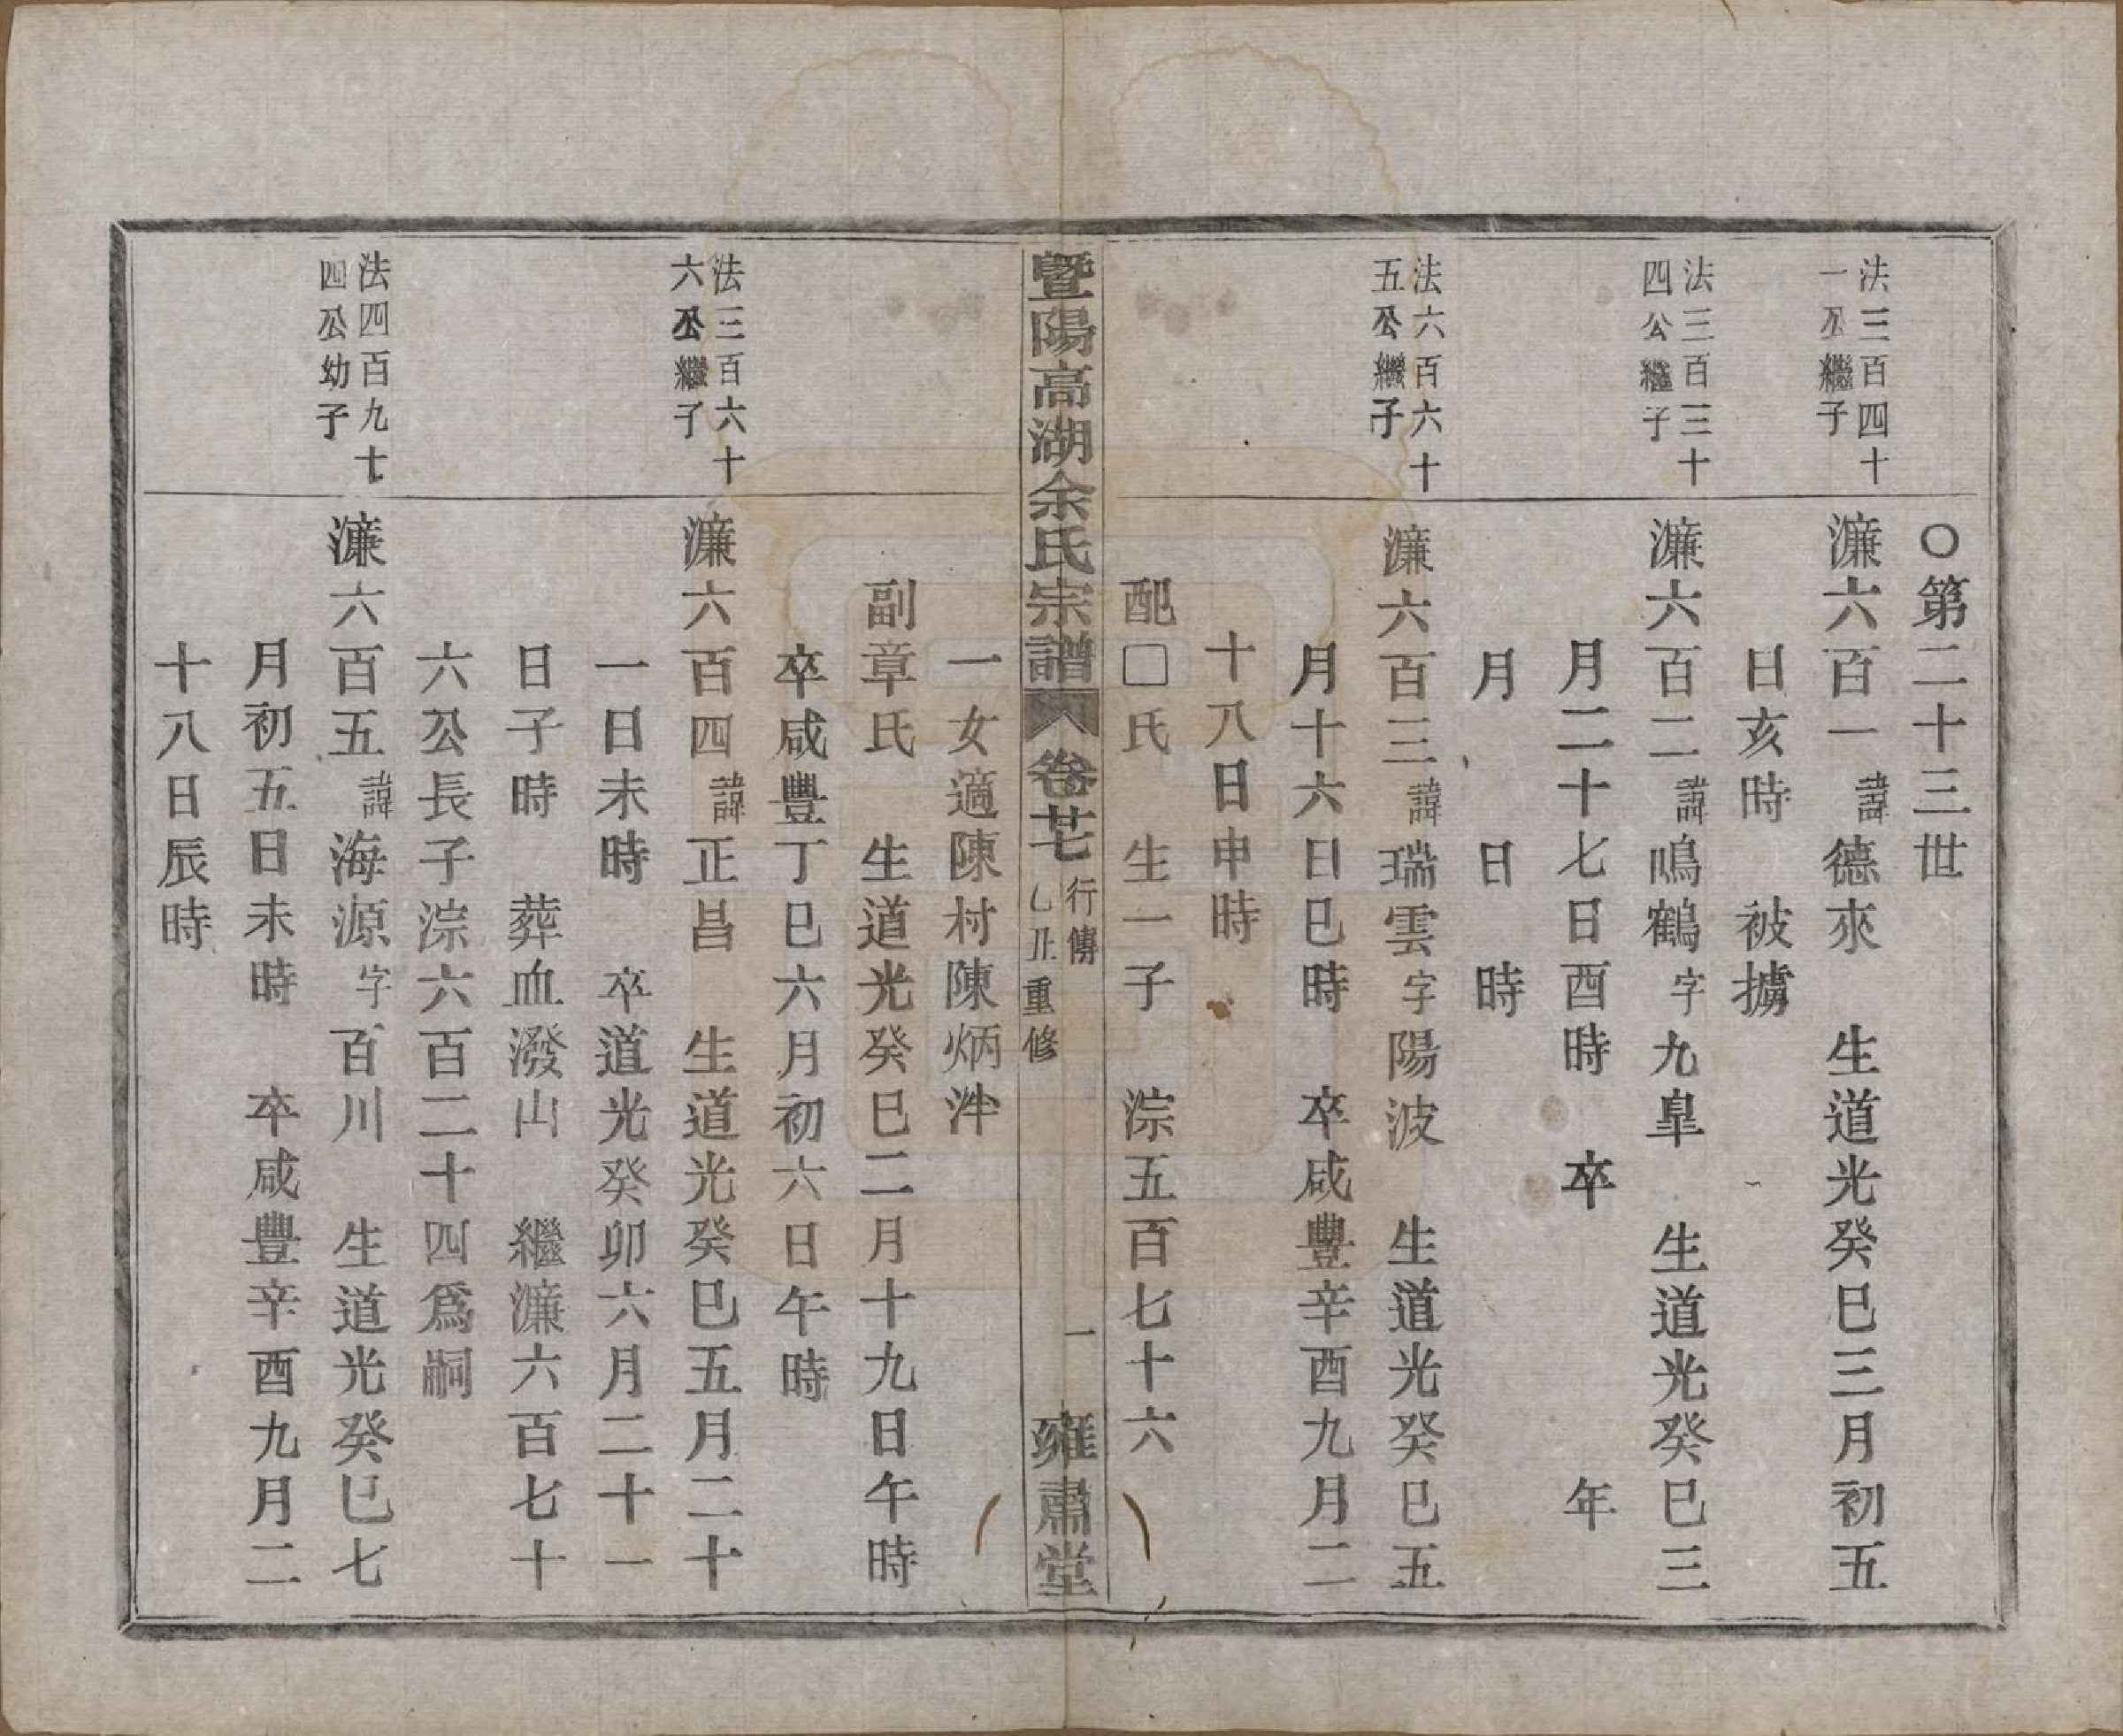 〇第二十三世
法三百四十
一公繼子
濂六百一諱德來　生道光癸巳三月初五
日亥時　被擄
法三百三十
四公繼子
濂六百二諱鳴鶴字九臯　生道光癸巳三
月二十七日酉時　卒　　　　年
月　　日　時
法六百六十
五公繼子
濂六百三諱瑞雲字陽波　生道光癸巳五
月十六日巳時　卒咸豐辛酉九月二
十八日申時
配□氏　生一子　淙五百七十六
暨陽高湖余氏宗譜　卷廿七　行傳　乙丑重修　一　雍肅堂
一女適陳村陳炳沣
副章氏　生道光癸巳二月十九日午時
卒咸豐丁巳六月初六日午時
法三百六十
六公繼子
濂六百四諱正昌　生道光癸巳五月二十
一日未時　卒道光癸卯六月二十一
日子時　葬血潑山　繼濂六百七十
六公長子淙六百二十四爲嗣
法四百九十七
四公幼子
濂六百五諱海源字百川　生道光癸巳七
月初五日未時　卒咸豐辛酉九月二
十八日辰時